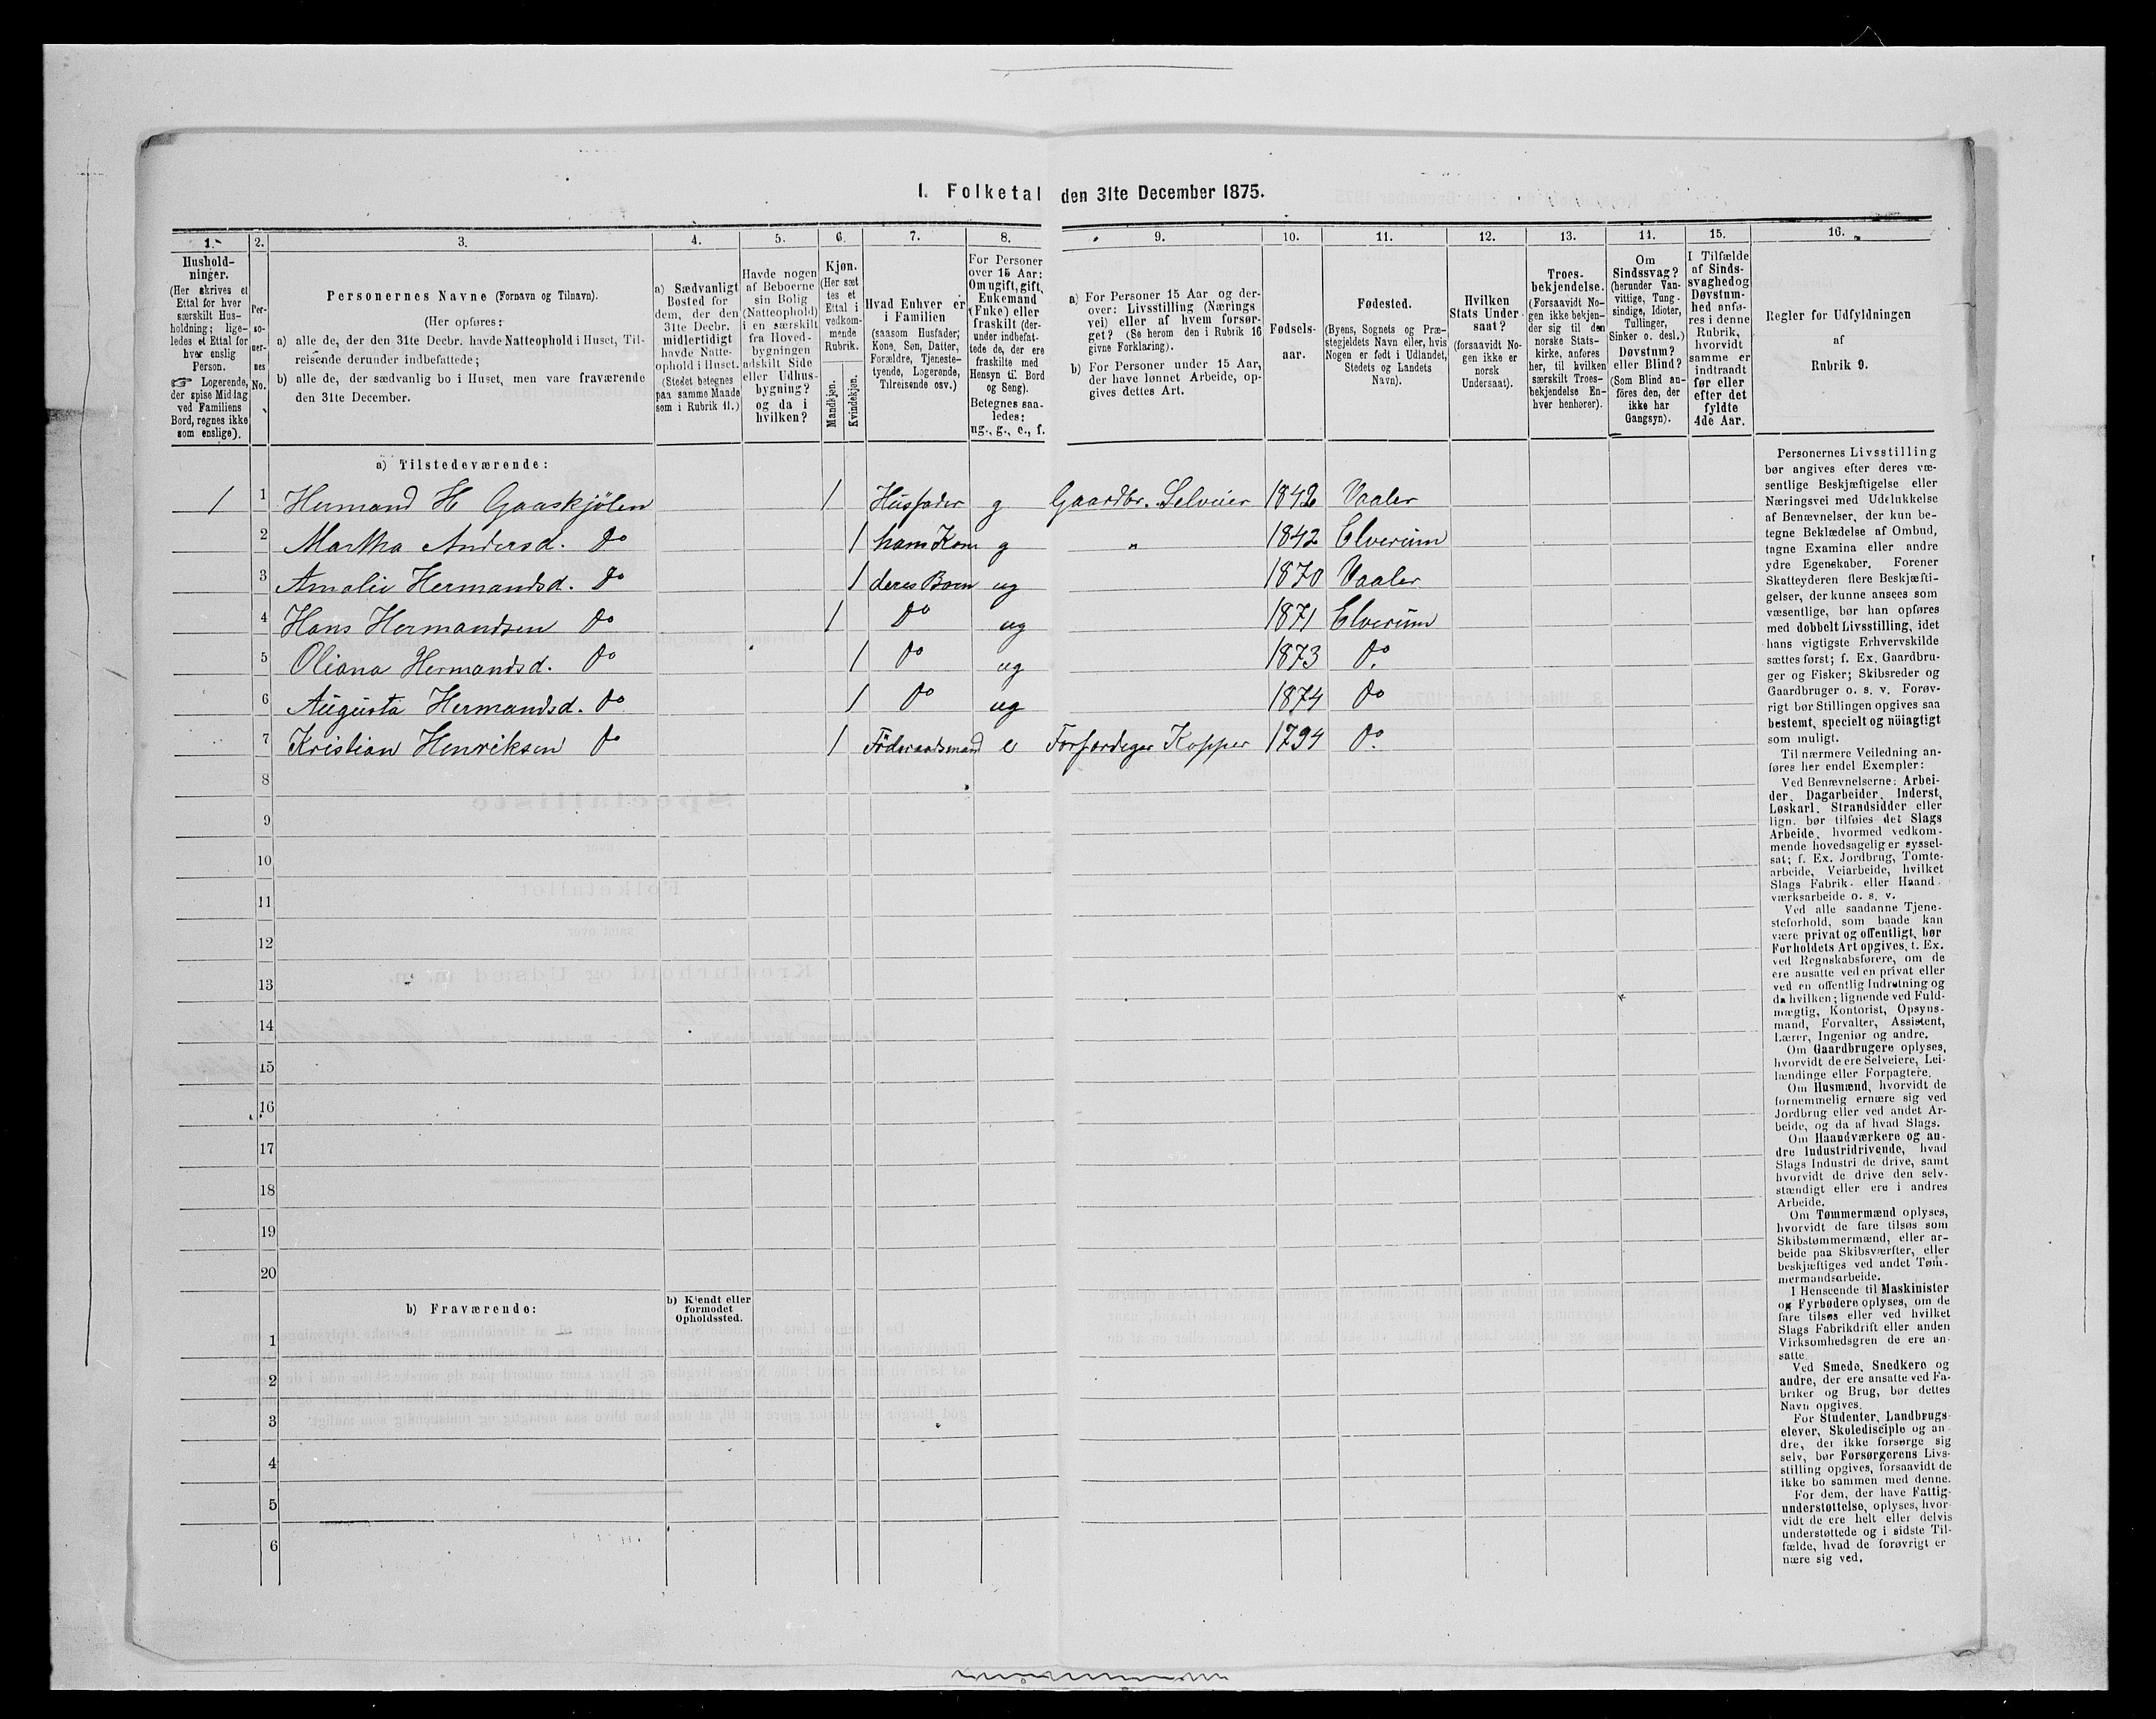 I. Folketal den 31te December 1875.
1. 2. 3. 4. 5. 6. 7. 8. 9. 10. 11. 12. 13. 14. 15. 16.
Hushold-
ninger.
(Her skrives et
Ettal for hver
særskilt Hus-
holdning; lige-
ledes et Ettal for
hver enslig
Person.
☞ Logerende,
der spise Middag
ved Familiens
Bord, regnes ikke
som enslige).
Per-
so-
ner-
nes
No.
Personernes Navne (Fornavn og Tilnavn).
(Her opføres:
a) alle de, der den 31te Decbr. havde Natteophold i Huset, Til-
reisende derunder indbefattede;
b) alle de, der sædvanlig bo i Huset, men vare fraværende
den 31te December.
a) Sædvanligt
Bosted for
dem, der den
31te Decbr.
midlertidigt
havde Natte-
ophold i Huset.
(Stedet betegnes
paa samme Maade
som i Rubrik 11.)
Havde nogen
af Beboerne
sin Bolig
(Natteophold)
i en særskilt
fra Hoved-
bygningen
adskilt Side
eller Udhus-
bygning?
og da i
hvilken?
Kjøn.
(Her sæt
tes et
Ettal i
vedkom-
mende
Rubrik.
Mandkjøn.
Kvindekjøn.
Hvad Enhver er
i Familien
(saasom Husfader,
Kone, Søn, Datter,
Forældre, Tjeneste-
tyende, Logerende,
Tilreisende osv.)
For Personer
over 15 Aar:
Om ugift, gift,
Enkemand
(Enke) eller
fraskilt (der-
under indbefat-
tede de, der ere
fraskilte med
Hensyn til Bord
og Seng).
Betegnes saa-
ledes:
ug., g., e., f.
a) For Personer 15 Aar og der-
over: Livsstilling (Nærings
vei) eller af hvem forsør-
get? (Se herom den i Rubrik 16
givne Forklaring).
b) For Personer under 15 Aar,
der have lønnet Arbeide, op-
gives dettes Art.
Fødsels-
aar.
Fødested.
(Byens, Sognets og Præ-
stegjeldets Navn eller, hvis
Nogen er født i Udlandet,
Stedets og Landets
Navn).
Hvilken
Stats Under-
saat?
(forsaavidt No-
gen ikke er
norsk
Undersaat).
Troes-
bekjendelse.
(Forsaavidt No-
gen ikke bekjen-
der sig til den
norske Stats-
kirke, anføres
her, til hvilken
særskilt Troes-
bekjendelse En-
hver henhører).
Om
Sindssvag?
(herunder Van-
vittige, Tung-
sindige, Idioter,
Tullinger,
Sinker o. desl.)
Døvstum?
eller Blind?
(Som Blind an-
føres den, der
ikke har
Gangsyn).
I Tilfælde
af Sinds-
svaghed og
Døvstum-
hed anfø-
res i denne
Rubrik,
hvorvidt
samme er
indtraadt
før eller
efter det
fyldte
4de Aar.
Regler for Udfyldningen
af
Rubrik 9.
a) Tilstedeværende:
1 1 Hermand H Gaaskjølen 1 Husfader g Gaardbr. Selveier 1842 Vaaler
2 Martha Andersd. Do 1 hans Kone g " 1842 Elverum
3 Amalie Hermandsd. Do 1 deres Barn ug 1870 Vaaler
4 Hans Hermandsen Do 1 Do ug 1871 Elverum
5 Oliana Hermandsd. Do 1 Do ug 1873 Do.
6 Augusta Hermandsd. Do 1 Do ug 1874 Do
7 Kristian Henriksen Do 1 Föderaadsmand e Forfærdiger Kopper 1794 Do.
8
9
10
11
12
13
14
15
16
17
18
19
20
b) Fraværende:
b) Kjendt eller
formodet
Opholdssted.
1
2
3
4
5
6
Personernes Livsstilling
bør angives efter deres væ-
sentlige Beskjæftigelse eller
Næringsvei med Udelukkelse
af Benævnelser, der kun be-
tegne Beklædelse af Ombud,
tagne Examina eller andre
ydre Egenskaber. Forener
Skatteyderen flere Beskjæfti-
gelser, der kunne ansees som
væsentlige, bør han opføres
med dobbelt Livsstilling, idet
hans vigtigste Erhvervskilde
sættes først; f. Ex. Gaardbru-
ger og Fisker; Skibsreder og
Gaardbruger o. s. v. Forøv-
rigt bør Stillingen opgives saa
bestemt, specielt og nöiagtigt
som muligt.
Til nærmere Veiledning an-
føres her endel Exempler:
Ved Benævnelserne: Arbei-
der, Dagarbeider, Inderst,
Løskarl, Strandsidder eller
lign. bør tilføies det Slags
Arbeide, hvormed vedkom-
mende hovedsagelig er syssel-
sat; f. Ex. Jordbrug, Tomte-
arbeide, Veiarbeide, hvilket
Slags Fabrik- eller Haand-
værksarbeide o. s. v.
Ved alle saadanne Tjene-
steforhold, som baade kan
være privat og offentligt, bør
Forholdets Art opgives, f. Ex.
ved Regnskabsførere, om de
ere ansatte ved en privat eller
ved en offentlig Indretning og
da hvilken; lignende ved Fuld-
mægtig, Kontorist, Opsyns-
mand, Forvalter, Assistent,
Lærer, Ingeniør og andre.
Om Gaardbrugere oplyses,
hvorvidt de ere Selveiere, Lei-
lændinge eller Forpagtere.
Om Husmænd, hvorvidt de
fornemmelig ernære sig ved
Jordbrug eller ved andet Ar-
beide, og da af hvad Slags.
Om Haandværkere og an-
dre Industridrivende, hvad
Slags Industri de drive, samt
hvorvidt de drive den selv-
stændigt eller ere i andres
Arbeide.
Om Tømmermænd oplyses,
hvorvidt de fare tilsøs som
Skibstømmermænd, eller ar-
beide paa Skibsværfter, eller
beskjæftiges ved andet Tøm-
mermandsarbeide.
I Henseende til Maskinister
og Fyrbødere oplyses, om de
fare tilsøs eller ved hvilket
Slags Fabrikdrift eller anden
Virksomhedsgren de ere an-
satte.
Ved Smede, Snedkere og
andre, der ere ansatte ved Fa-
briker og Brug, bør dettes
Navn opgives.
For Studenter, Landbrugs-
elever, Skoledisciple og an-
dre, der ikke forsørge sig
selv, bør Forsørgerens Livs-
stilling opgives, forsaavidt de
ikke bo sammen med denne.
For dem, der have Fattig-
understøttelse, oplyses, hvor-
vidt de ere helt eller delvis
understøttede og i sidste Til-
fælde, hvad de forøvrigt er
nære sig ved.